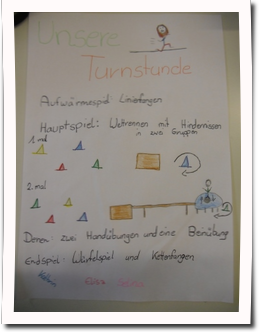 Unsere
Turnstunde
Aufwärmespiel: Linienfangen
Hauptspiel: Wettrennen mit Hindernissen
in zwei Gruppen
1. mal
2. mal
Denen: zwei Handübungen und eine Beinübung
Endspiel: Würfelspiel und Kettenfangen